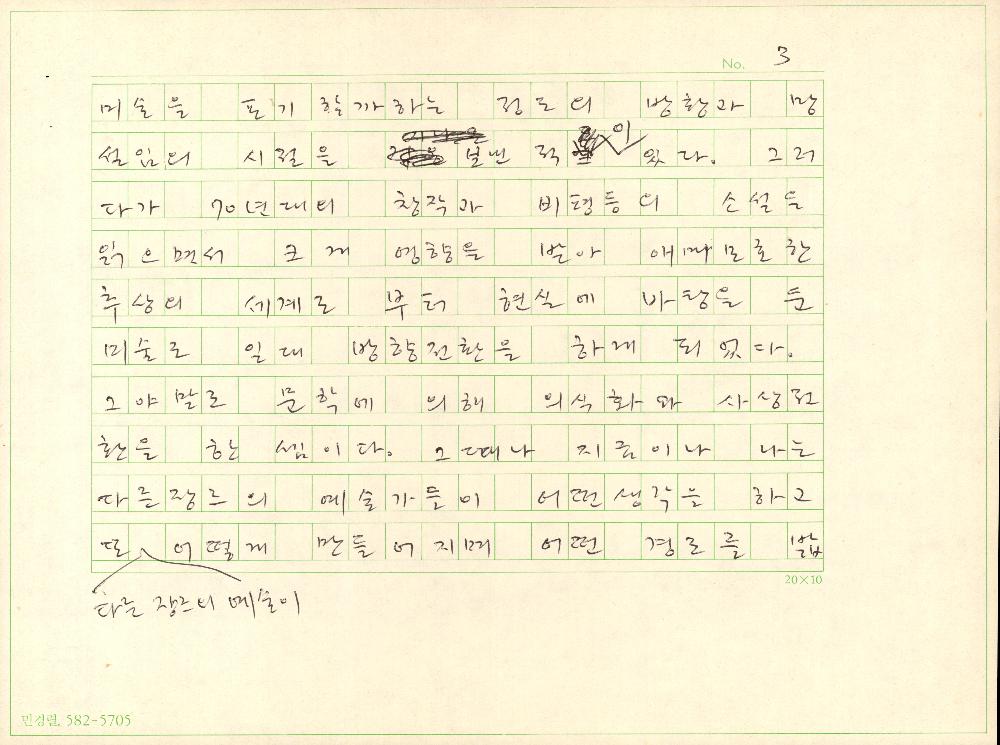 No. 3
미술을 포기할까하는 정도의 방황과 망
설임의 시절을 보낸 적이 있다. 그러
다가 70년대의 창작과 비평등의 소설들
읽으면서 크게 영향을 받아 애매모호한
추상의 세계로 부터 현실에 바탕을 둔
미술로 일대 방향전환을 하게 되었다.
그야말로 문학에 의해 의식화와 사상전
환을 한 셈이다. 그때나 지금이나 나는
다른장르의 예술가들이 어떤생각을 하고
또 어떻게 만들어지며 어떤 경로를 밟
다른 장르의 예술이
20×10
민정렬. 582-5705